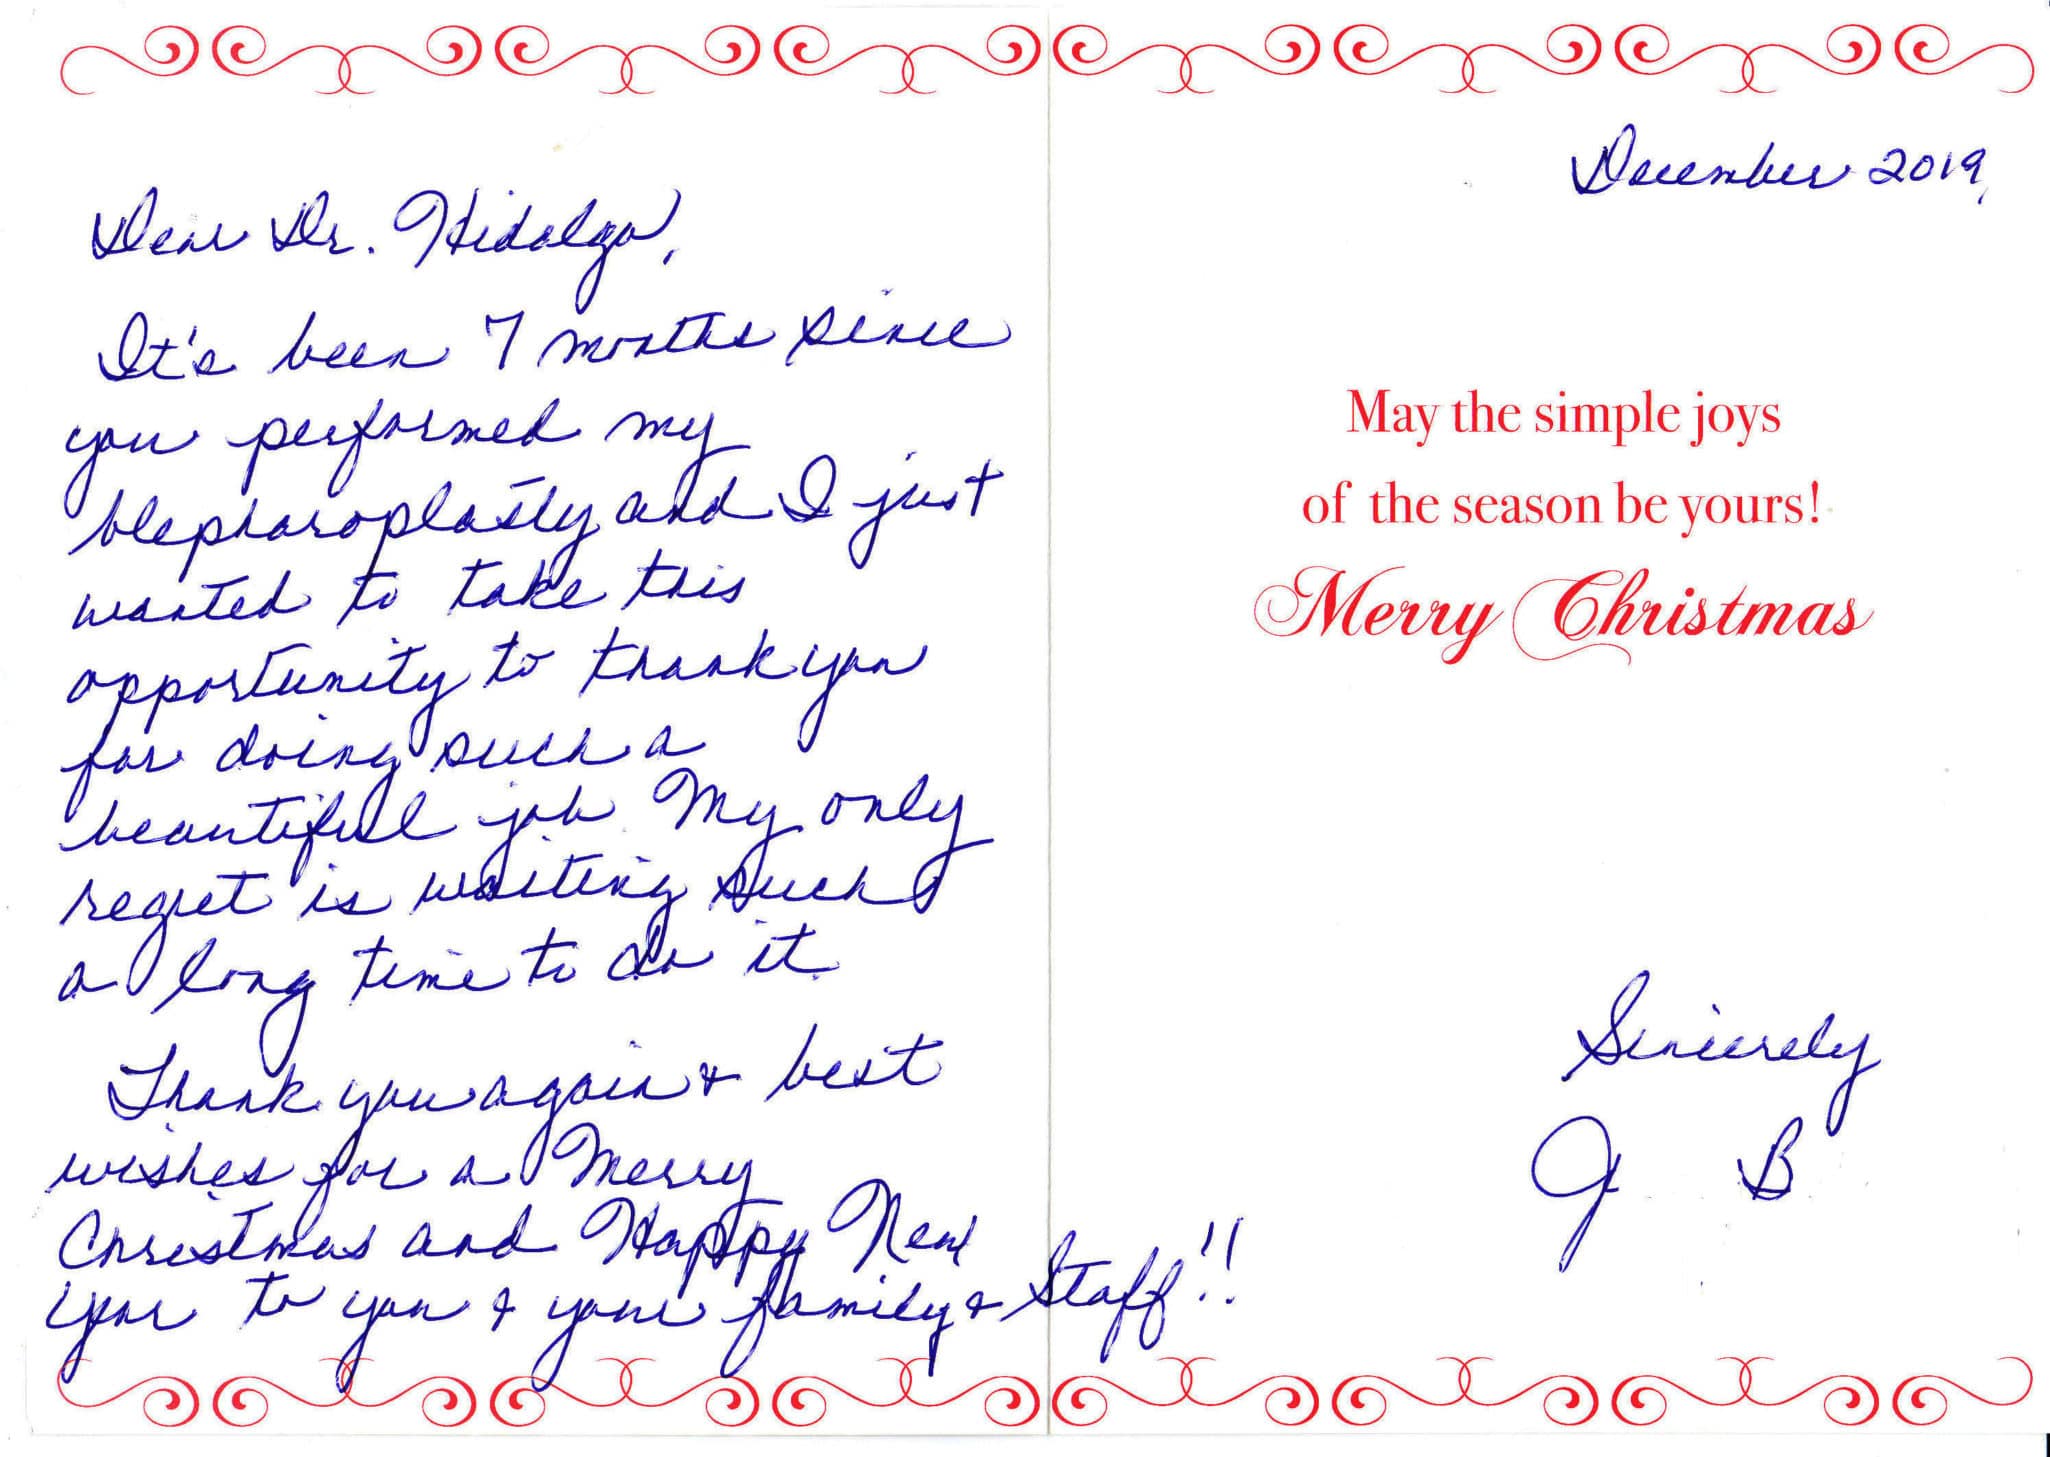 Dear Dr. Hidalgo,
It's been 7 months since
you performed my
blepharoplasty and I just
wanted to take this
opportunity to thank you
for doing such a
beautiful job. My only
regret is waiting such
a long time to do it.
Thank you again & best
wishes for a Merry
Christmas and Happy New
Year to you & your family & Staff!!
December 2019,
May the simple joys
of the season be yours!
Merry Christmas
Sincerely
J B